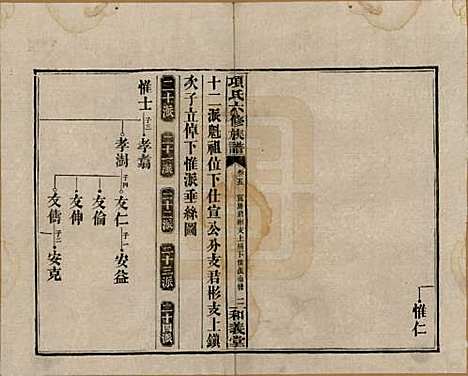 惟仁
項氏六修族譜
卷五
二
和義堂
十二派魁祖位下仕宣公分支君彬支上鎮
次子立倬下惟派垂絲圖
二十派
二十一派
二十二派
二十三派
二十四派
惟士
子二
孝嘉
孝澍
子四
友仁
子一
安益
友倫
友伸
友儔
子一
安克